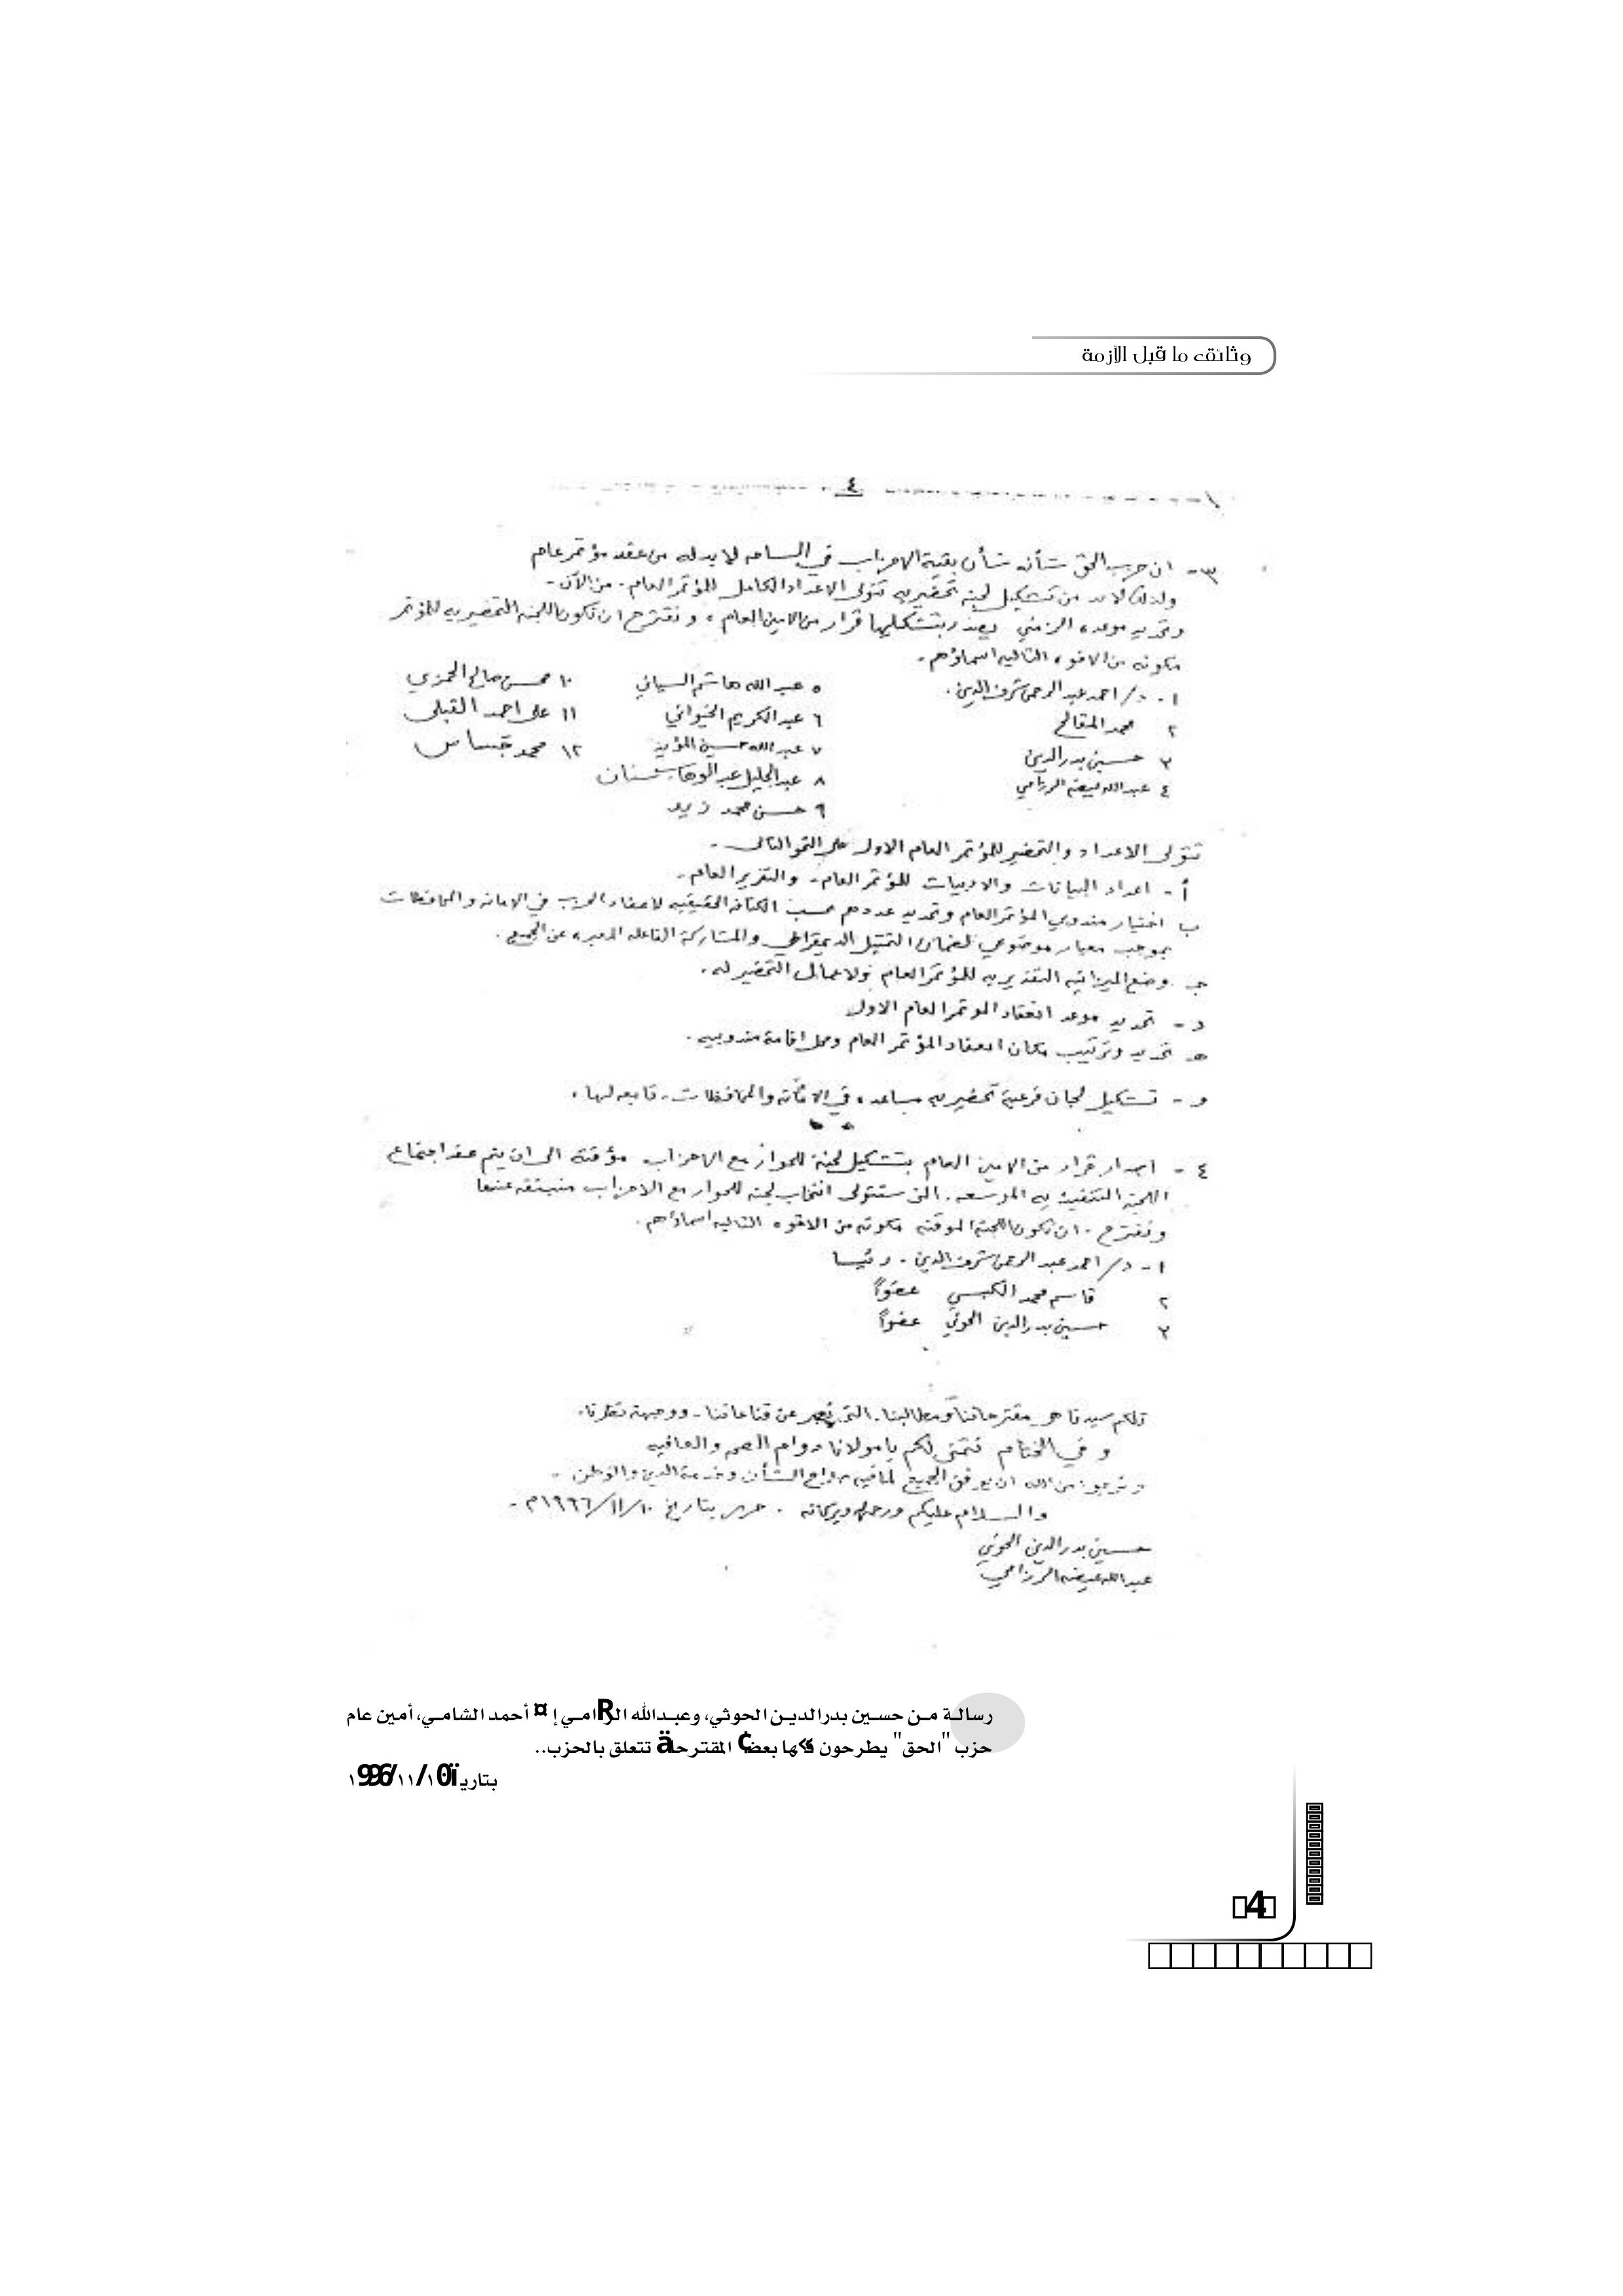 وثائق ما قبل الأزمة
٤
٣- ان حزب الحق شأنه شأن بقية الاحزاب في الساحه لابد له من عقد مؤتمر عام
ولذلك لابد من تشكيل لجنه تحضيريه تتولى الاعداد الكامل للمؤتمر العام - من الآن -
وتحديد موعده الزمني يصدر بتشكيلها قرار من الامين العام ، ونقترح ان تكون اللجنه التحضيريه للمؤتمر
مكونه من الاخوه التاليه اسماؤهم -
١- د/ احمد عبد الرحمن شرف الدين .
٢ محمد المقالح
٣ حسين بدر الدين
٤ عبد الله عيضه الرزامي
٥ عبد الله هاشم السياني
٦ عبد الكريم الخيواني
٧ عبد الله حسين المؤيد
٨ عبد الجليل عبد الوهاب سنان
٩ حسن محمد زيد
١٠ محسن صالح الحمزي
١١ علي احمد القبلي
١٢ محمد جساس
تتولى الاعداد والتحضير للمؤتمر العام الاول على النحو التالي -
أ - اعداد البيانات والادبيات للمؤتمر العام - والتقرير العام -
ب اختيار مندوبي المؤتمر العام وتحديد عددهم حسب الكثافه الحقيقيه لاعضاء الحزب في الامانه والمحافظات
بموجب معيار موضوعي لضمان التمثيل الديمقراطي والمشاركة الفاعله المعبره عن الجميع .
جـ . وضع الميزانيه التقديريه للمؤتمر العام ولاعمال التحضير له .
د - تحديد موعد انعقاد الموتمر العام الاول
هـ تحديد وترتيب مكان انعقاد المؤتمر العام ومحل اقامة مندوبيه .
و - تشكيل لجان فرعية تحضيريه مساعده في الامانه والمحافظات - تابعه لها .
٤ - اصدار قرار من الامين العام بتشكيل لجنة للحوار مع الاحزاب مؤقته الى ان يتم عقد اجتماع
اللجنه التنفيذيه الموسعه . التي ستتولى انتخاب لجنه للحوار مع الاحزاب منبثقه عنها
ونقترح . ان تكون اللجنة الموقته مكونه من الاخوه التاليه اسماؤهم .
١- د/ احمد عبد الرحمن شرف الدين . رئيسا
٢ قاسم محمد الكبسي عضواً
٣ حسين بدر الدين الحوثي عضواً
تلكم سيدنا هي مقترحاتنا ومطالبنا . التي تعبر عن قناعاتنا - ووجهة نظرنا .
و في الختام نتمنى لكم يا مولانا دوام الصحه والعافيه
ونرجو من الله ان يوفق الجميع لما فيه صلاح الشأن وخدمة الدين والوطن -
والسلام عليكم ورحمة الله وبركاته . حرر بتاريخ ١٠/١١/١٩٩٦م -
حسين بدر الدين الحوثي
عبد الله عيضه الرزامي
رسالة من حسين بدرالدين الحوثي، وعبدالله الRامي إ¤ أحمد الشامي، أمين عام
حزب "الحق" يطرحون بعض المقترحاä تتعلق بالحزب..
بتاريï ١٠/١١/١996
4